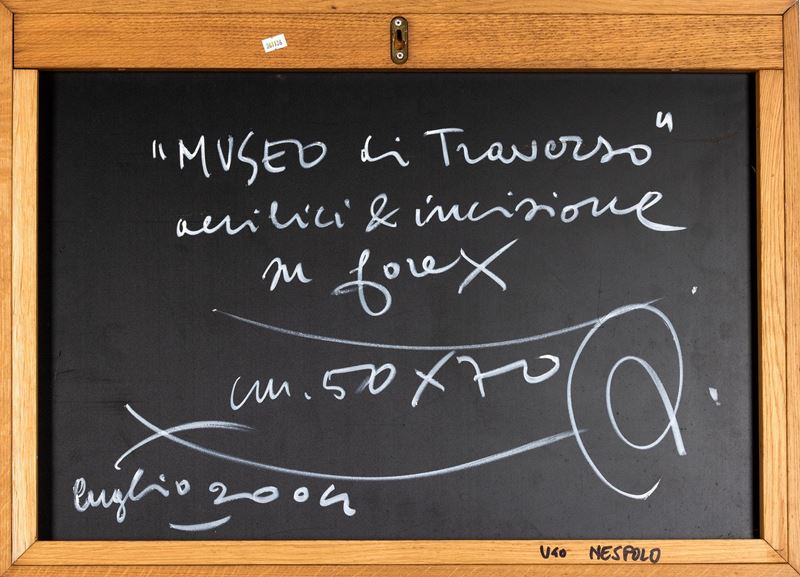 "MUSEO di Traverso"
acrilici & incisione
su forex
cm. 50 x 70
luglio 2004
UGO NESPOLO